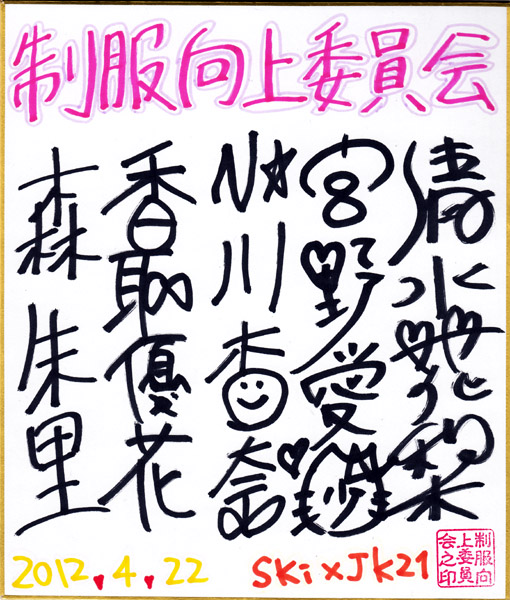 制服向上委員会
清水
宮野愛
川杏奈
香取優花
森朱里
2012.4.22
SKi×Jk21
制服向
上委員
会之印